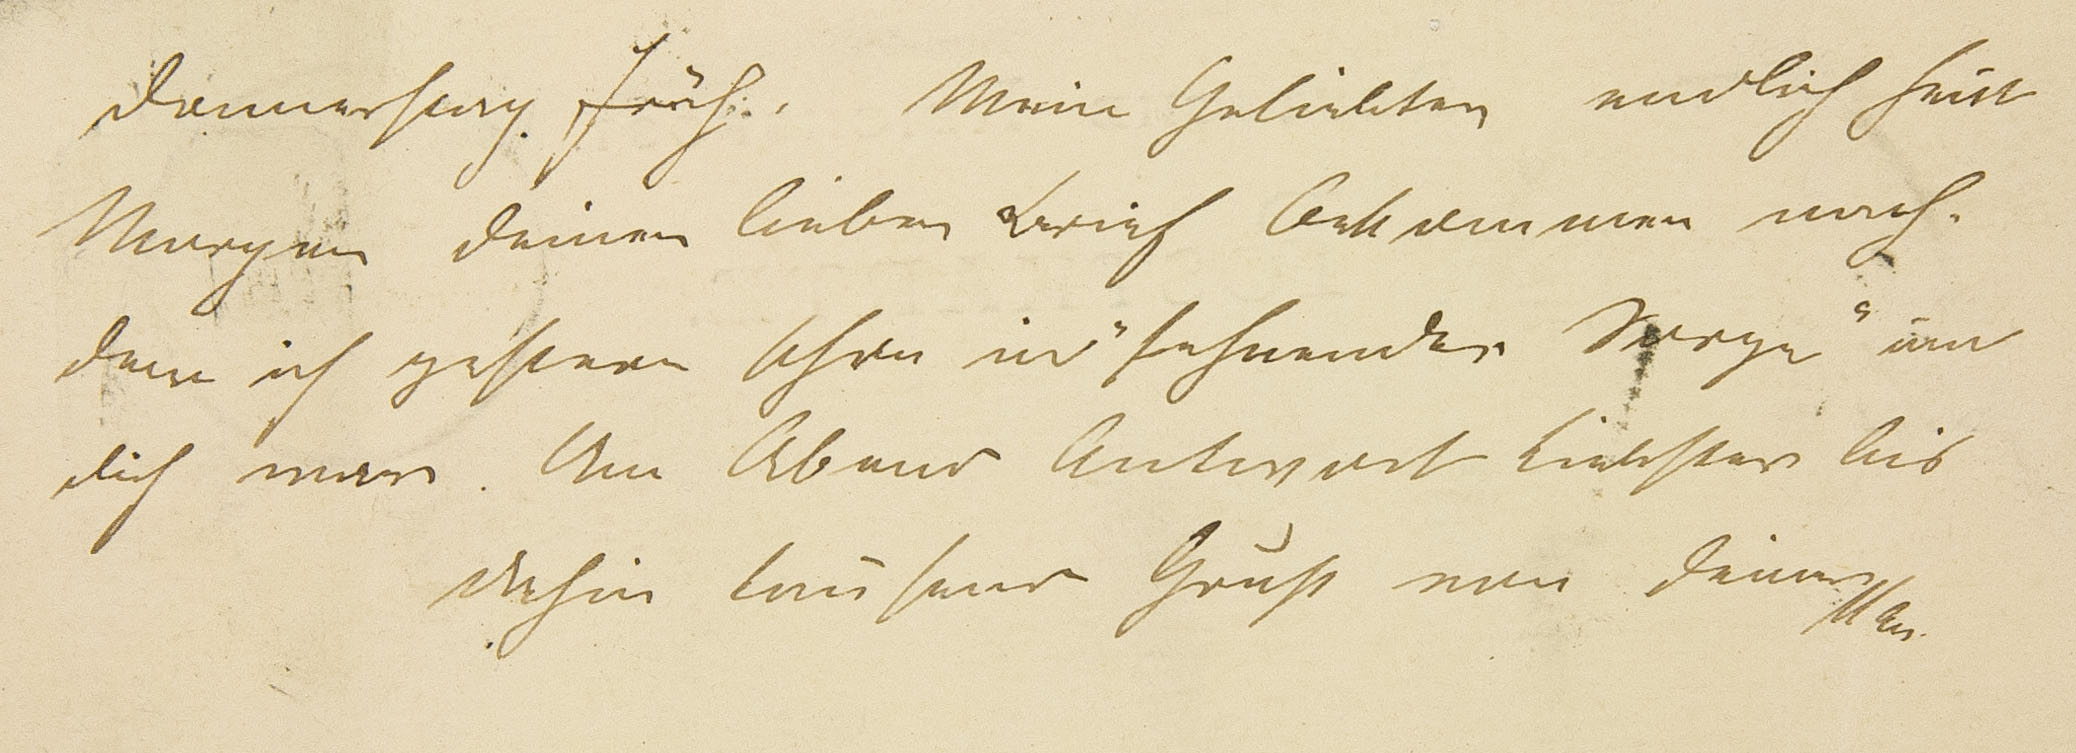 Donnerstag Früh. Mein Geliebter endlich heut
Morgen deinen lieben Brief bekommen nach-
dem ich gestern schon in "sehnender Sorge" um
dich war. Am Abend Antwort Liebster bis
dahin tausend Grüße von deiner